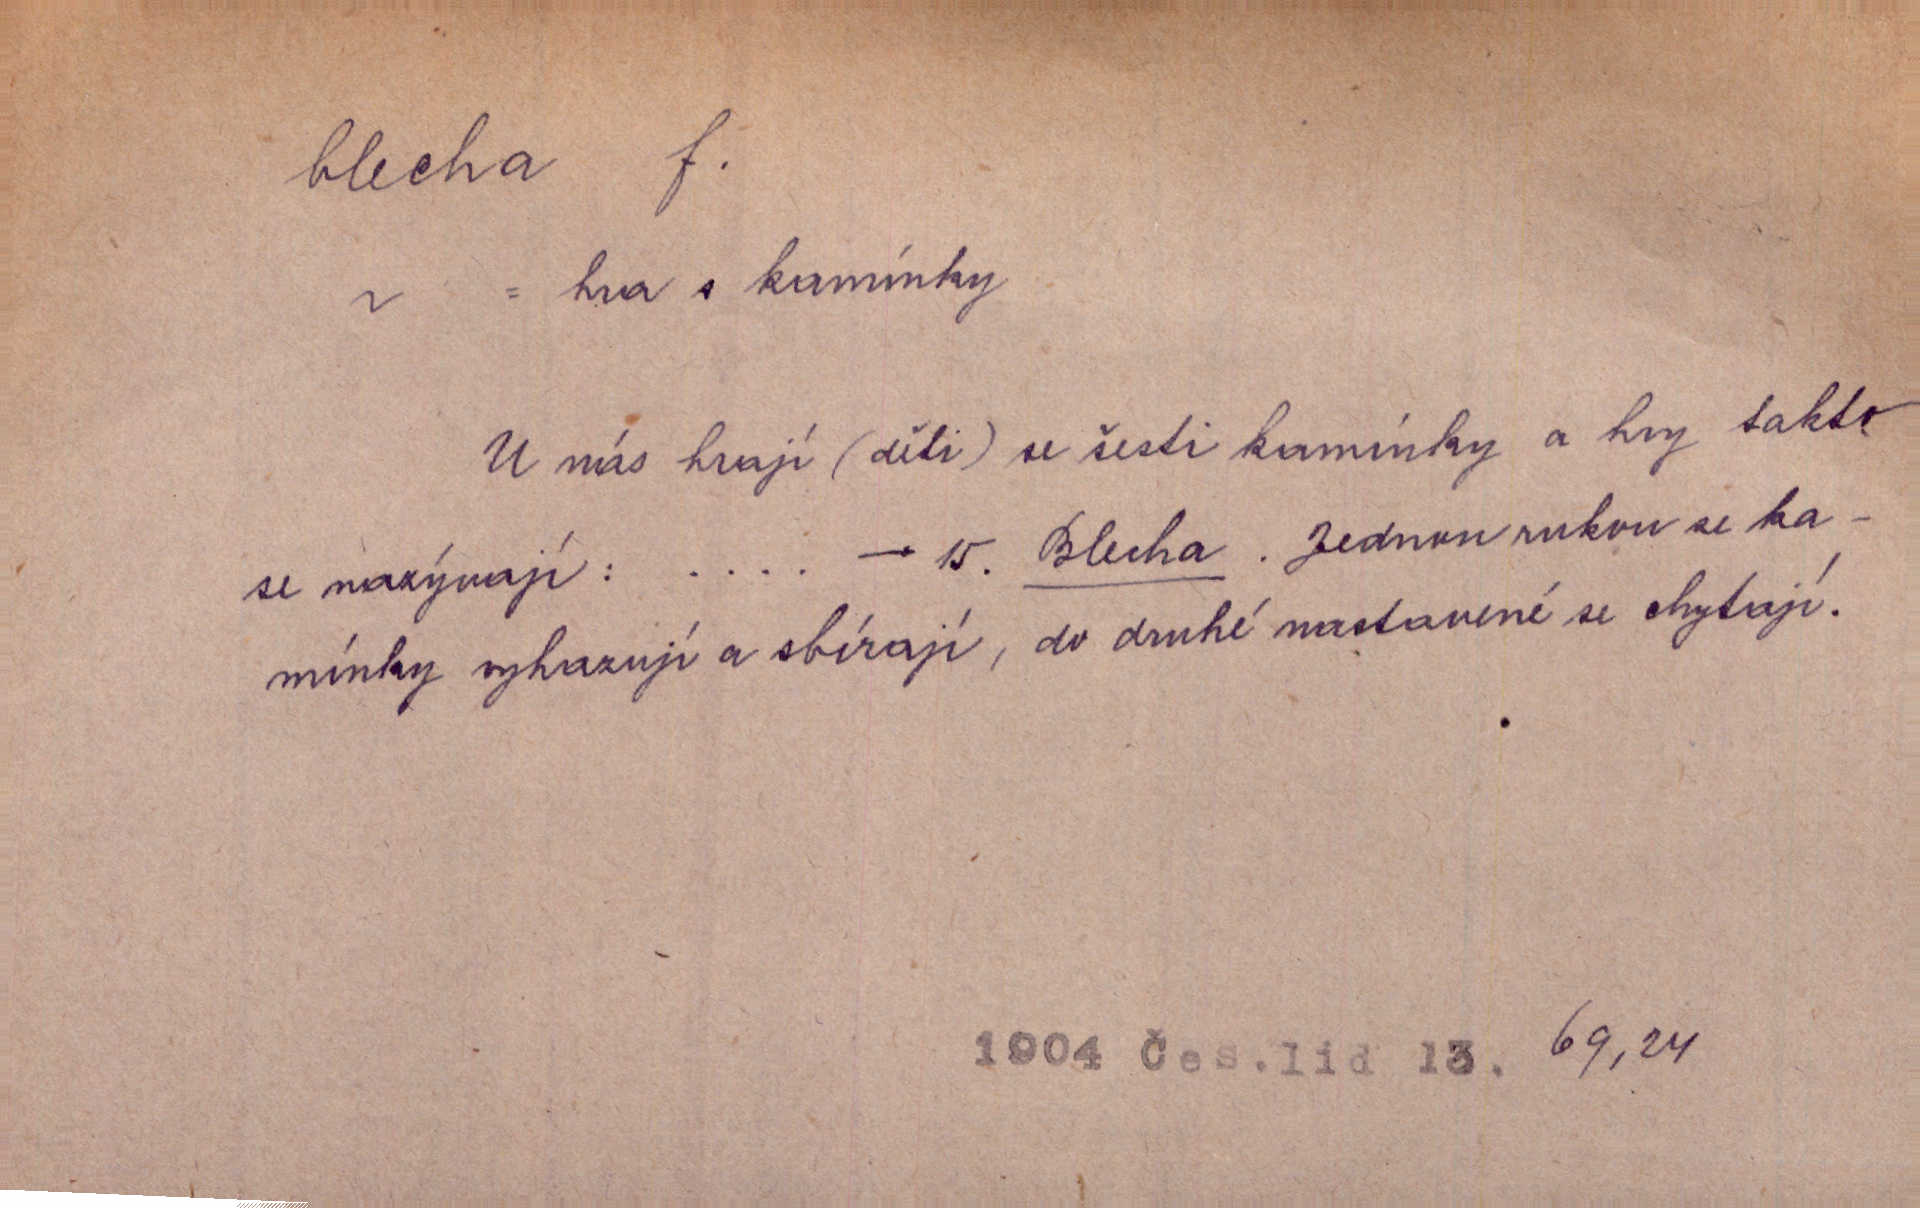 blecha f.
~ = hra s kamínky
U nás hrají (děti) se šesti kamínky a hry takto
se nazývají: .... → 15. Blecha. Jednou rukou se ka-
mínky vyhazují a sbírají, do druhé nastavené se chytají.
1904 Čes.lid 13. 69,24